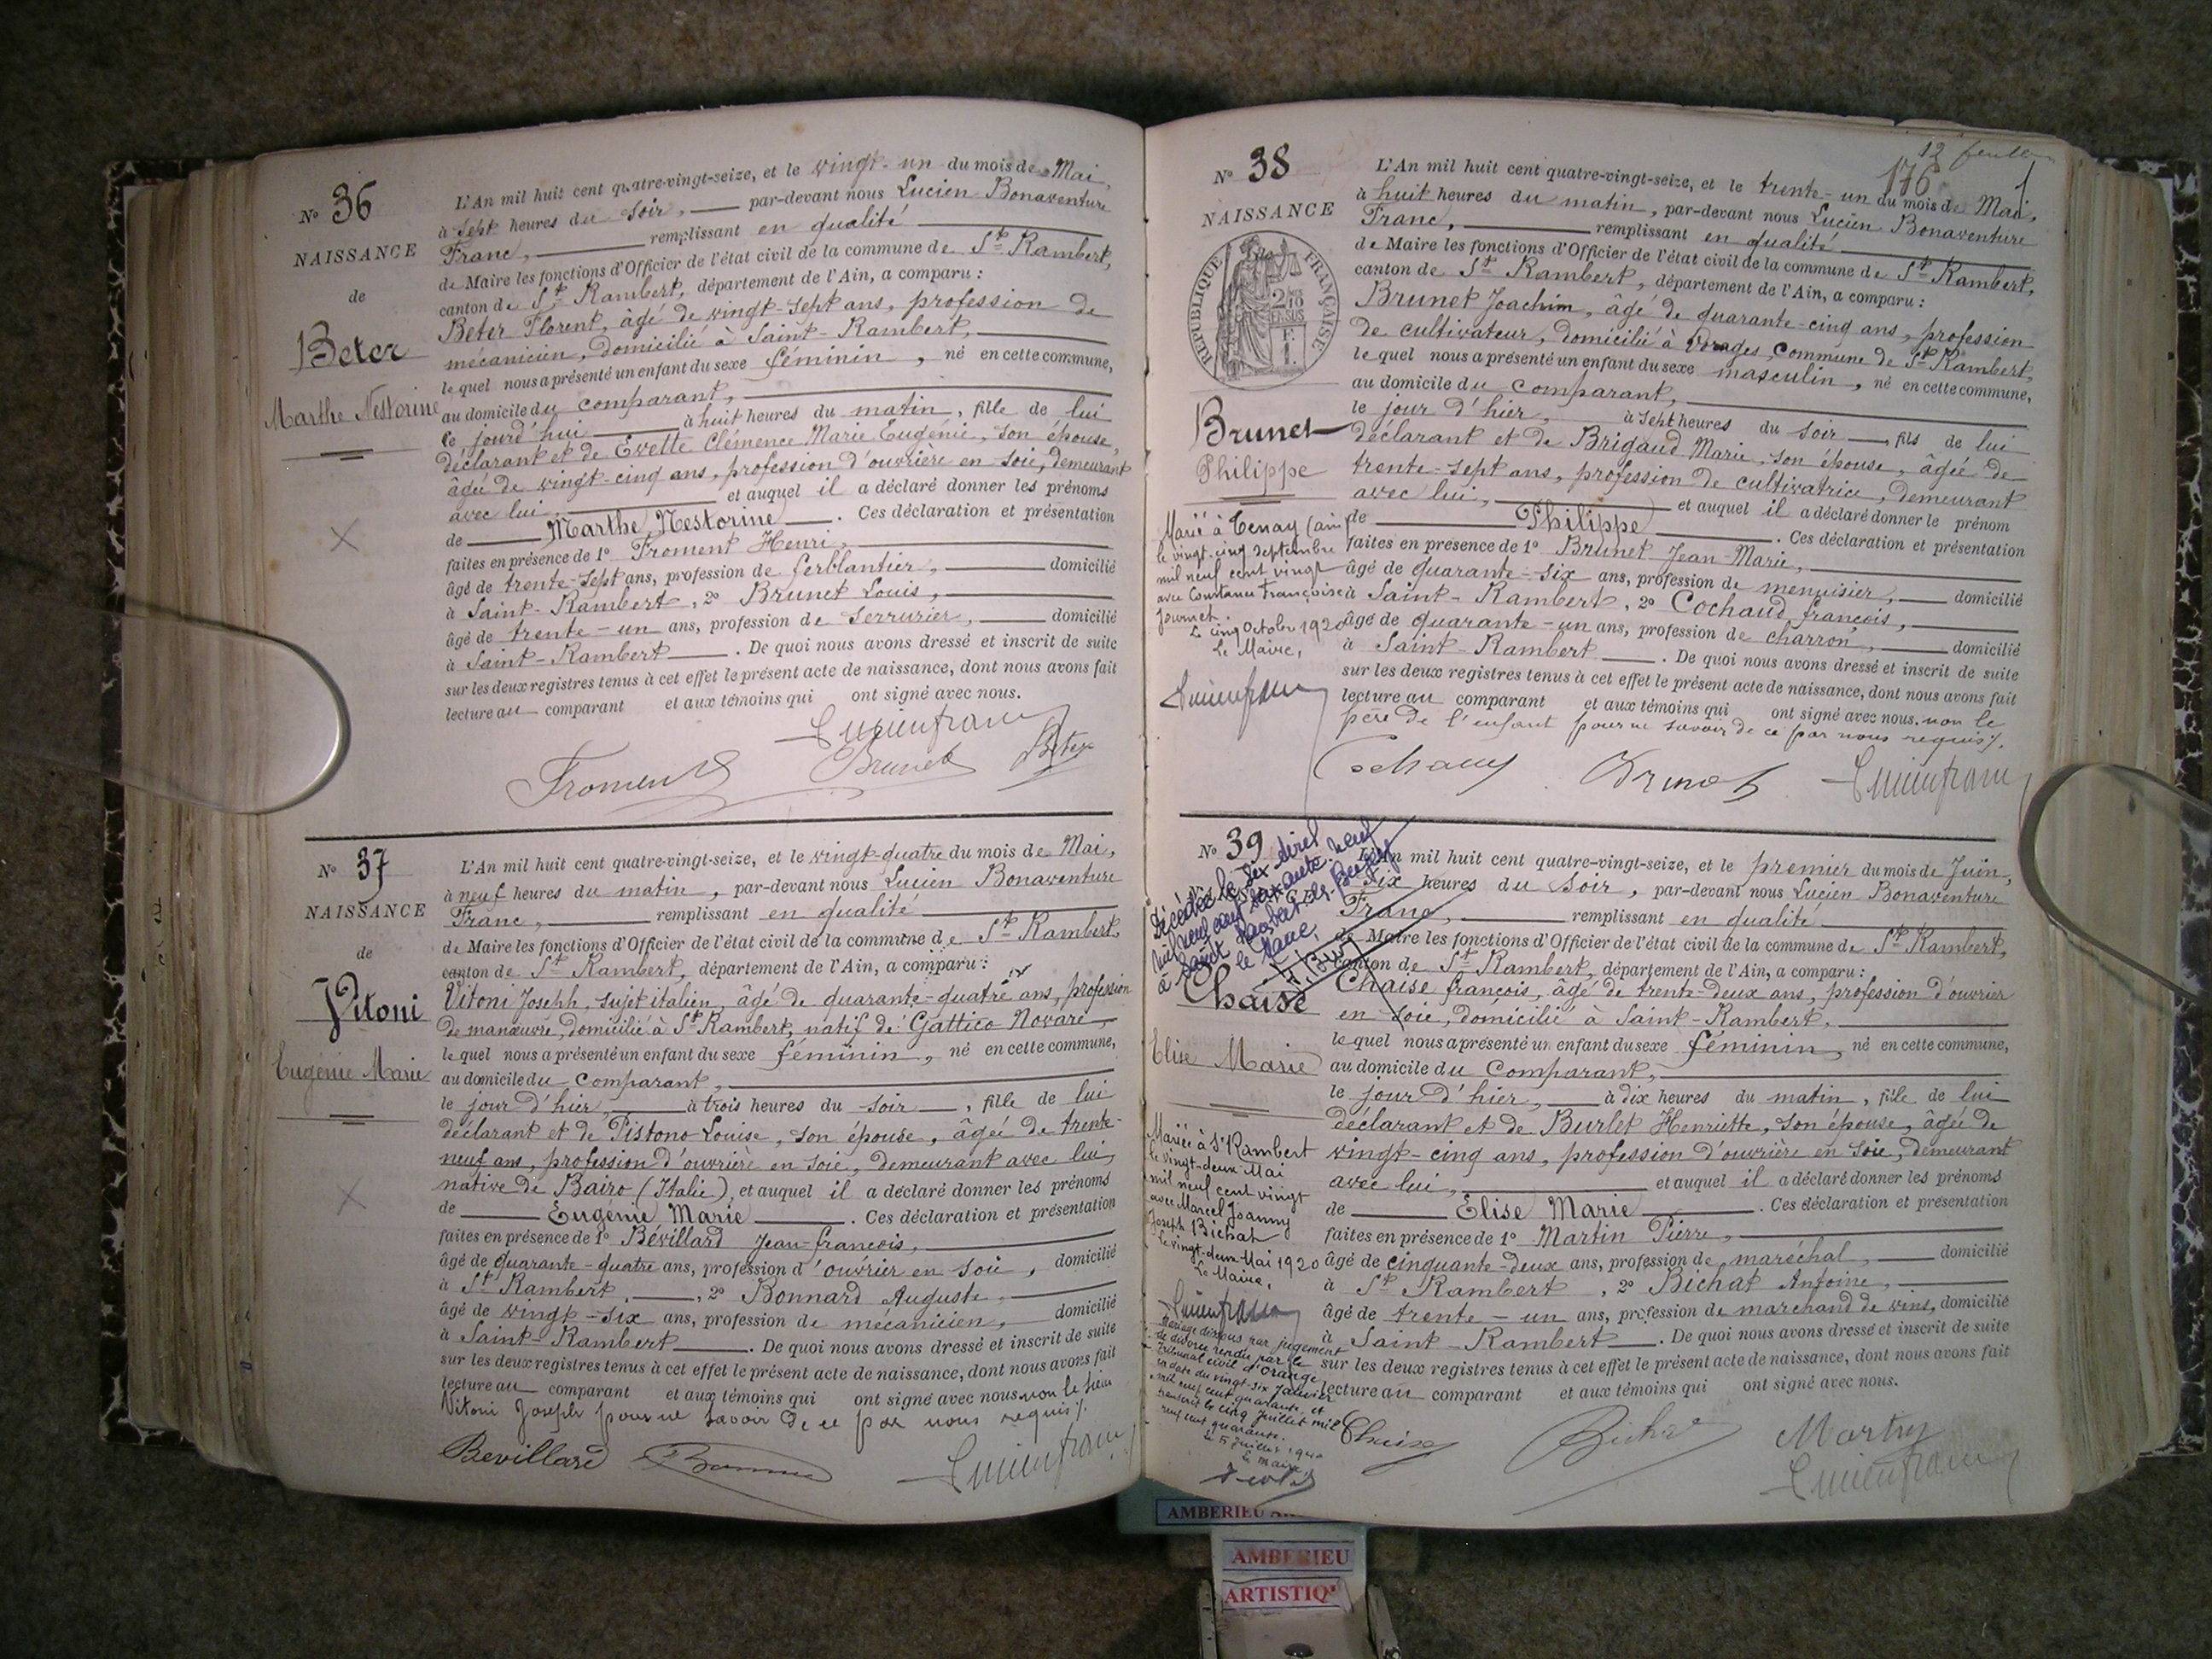 Nº 36
NAISSANCE
de
Beter
Marthe Nestorine
L'An mil huit cent quatre-vingt-seize, et le vingt-un du mois de Mai,
à sept heures du soir, par-devant nous Lucien Bonaventure
Franc, remplissant en qualité
de Maire les fonctions d'Officier de l'état civil de la commune de St Rambert,
canton de St Rambert, département de l'Ain, a comparu :
Beter Florent, âgé de vingt-sept ans, profession de
mécanicien, domicilié à Saint-Rambert,
lequel nous a présenté un enfant du sexe féminin, né en cette commune,
au domicile du comparant,
le jourd'hui à huit heures du matin, fille de lui
déclarant et de Evette Clémence Marie Eugénie, son épouse,
âgée de vingt-cinq ans, profession d'ouvrière en soie, demeurant
avec lui, et auquel il a déclaré donner les prénoms
de Marthe Nestorine. Ces déclaration et présentation
faites en présence de 1º Froment Henri,
âgé de trente-sept ans, profession de ferblantier, domicilié
à Saint-Rambert, 2º Brunet Louis,
âgé de trente-un ans, profession de serrurier, domicilié
à Saint-Rambert. De quoi nous avons dressé et inscrit de suite
sur les deux registres tenus à cet effet le présent acte de naissance, dont nous avons fait
lecture au comparant et aux témoins qui ont signé avec nous.
Lucien franc
Froment Brunet Beter
Nº 37
NAISSANCE
de
Vitoni
Eugénie Marie
L'An mil huit cent quatre-vingt-seize, et le vingt-quatre du mois de Mai,
à neuf heures du matin, par-devant nous Lucien Bonaventure
Franc, remplissant en qualité
de Maire les fonctions d'Officier de l'état civil de la commune de St Rambert,
canton de St Rambert, département de l'Ain, a comparu :
Vitoni Joseph, sujet italien, âgé de quarante-quatre ans, profession
de manœuvre, domicilié à St Rambert, natif de Gattico Novare,
lequel nous a présenté un enfant du sexe féminin, né en cette commune,
au domicile du comparant,
le jour d'hier, à trois heures du soir, fille de lui
déclarant et de Pistono Louise, son épouse, âgée de trente-
neuf ans, profession d'ouvrière en soie, demeurant avec lui,
native de Bairo (Italie), et auquel il a déclaré donner les prénoms
de Eugénie Marie. Ces déclaration et présentation
faites en présence de 1º Bévillard Jean-françois,
âgé de quarante-quatre ans, profession d'ouvrier en soie, domicilié
à St Rambert, 2º Bonnard Auguste,
âgé de vingt-six ans, profession de mécanicien, domicilié
à Saint-Rambert. De quoi nous avons dressé et inscrit de suite
sur les deux registres tenus à cet effet le présent acte de naissance, dont nous avons fait
lecture au comparant et aux témoins qui ont signé avec nous non le sieur
Vitoni Joseph pour ne savoir de ce par nous requis ./.
Bevillard Lucien franc
176
Nº 38
NAISSANCE
RÉPUBLIQUE FRANÇAISE
Brunet
Philippe
L'An mil huit cent quatre-vingt-seize, et le trente-un du mois de Mai,
à huit heures du matin, par-devant nous Lucien Bonaventure
Franc, remplissant en qualité
de Maire les fonctions d'Officier de l'état civil de la commune de St Rambert,
canton de St Rambert, département de l'Ain, a comparu :
Brunet Joachim, âgé de quarante-cinq ans, profession
de cultivateur, domicilié à Vorages, Commune de St Rambert,
lequel nous a présenté un enfant du sexe masculin, né en cette commune,
au domicile du comparant,
le jour d'hier, à sept heures du soir, fils de lui
déclarant et de Brigaud Marie, son épouse, âgée de
trente-sept ans, profession de cultivatrice, demeurant
avec lui, et auquel il a déclaré donner le prénom
de Philippe. Ces déclaration et présentation
faites en présence de 1º Brunet Jean-Marie,
âgé de quarante-six ans, profession de menuisier, domicilié
à Saint-Rambert, 2º Cochaud françois,
âgé de quarante-un ans, profession de charron, domicilié
à Saint-Rambert. De quoi nous avons dressé et inscrit de suite
sur les deux registres tenus à cet effet le présent acte de naissance, dont nous avons fait
lecture au comparant et aux témoins qui ont signé avec nous. non le
père de l'enfant pour ne savoir de ce par nous requis ./.
Marié à Tenay (ain)
le vingt-cinq septembre
mil neuf cent vingt
avec Constance Françoise
Journet
Le cinq Octobre 1920
Le Maire,
Lucien franc
Cochaud Brunet Lucien franc
Nº 39
Décédée le dix avril
mil neuf cent soixante neuf
à Saint Rambert en Bugey
le Maire,
Chaise
Elise Marie
L'An mil huit cent quatre-vingt-seize, et le premier du mois de Juin,
à six heures du soir, par-devant nous Lucien Bonaventure
Franc, remplissant en qualité
de Maire les fonctions d'Officier de l'état civil de la commune de St Rambert,
canton de St Rambert, département de l'Ain, a comparu :
Chaise françois, âgé de trente-deux ans, profession d'ouvrier
en soie, domicilié à Saint-Rambert,
lequel nous a présenté un enfant du sexe féminin, né en cette commune,
au domicile du Comparant,
le jour d'hier, à dix heures du matin, fille de lui
déclarant et de Burlet Henriette, son épouse, âgée de
vingt-cinq ans, profession d'ouvrière en soie, demeurant
avec lui, et auquel il a déclaré donner les prénoms
de Elise Marie. Ces déclaration et présentation
faites en présence de 1º Martin Pierre,
âgé de cinquante-deux ans, profession de maréchal, domicilié
à St Rambert, 2º Bichat Antoine,
âgé de trente-un ans, profession de marchand de vins, domicilié
à Saint-Rambert. De quoi nous avons dressé et inscrit de suite
sur les deux registres tenus à cet effet le présent acte de naissance, dont nous avons fait
lecture au comparant et aux témoins qui ont signé avec nous.
Mariée à St Rambert
le vingt-deux Mai
mil neuf cent vingt
avec Marcel Joanny
Joseph Bichat
Le vingt-deux Mai 1920
Le Maire,
Lucien franc
Mariage dissous par jugement
de divorce rendu par le
Tribunal civil d'Orange
en date du vingt-six Janvier
mil neuf cent quarante, et
transcrit le cinq Juillet mil
neuf cent quarante.
Le 5 Juillet 1940
Le Maire,
Chaise Bichat Martin
Lucien franc
AMBERIEU
AMBERIEU
ARTISTIQ